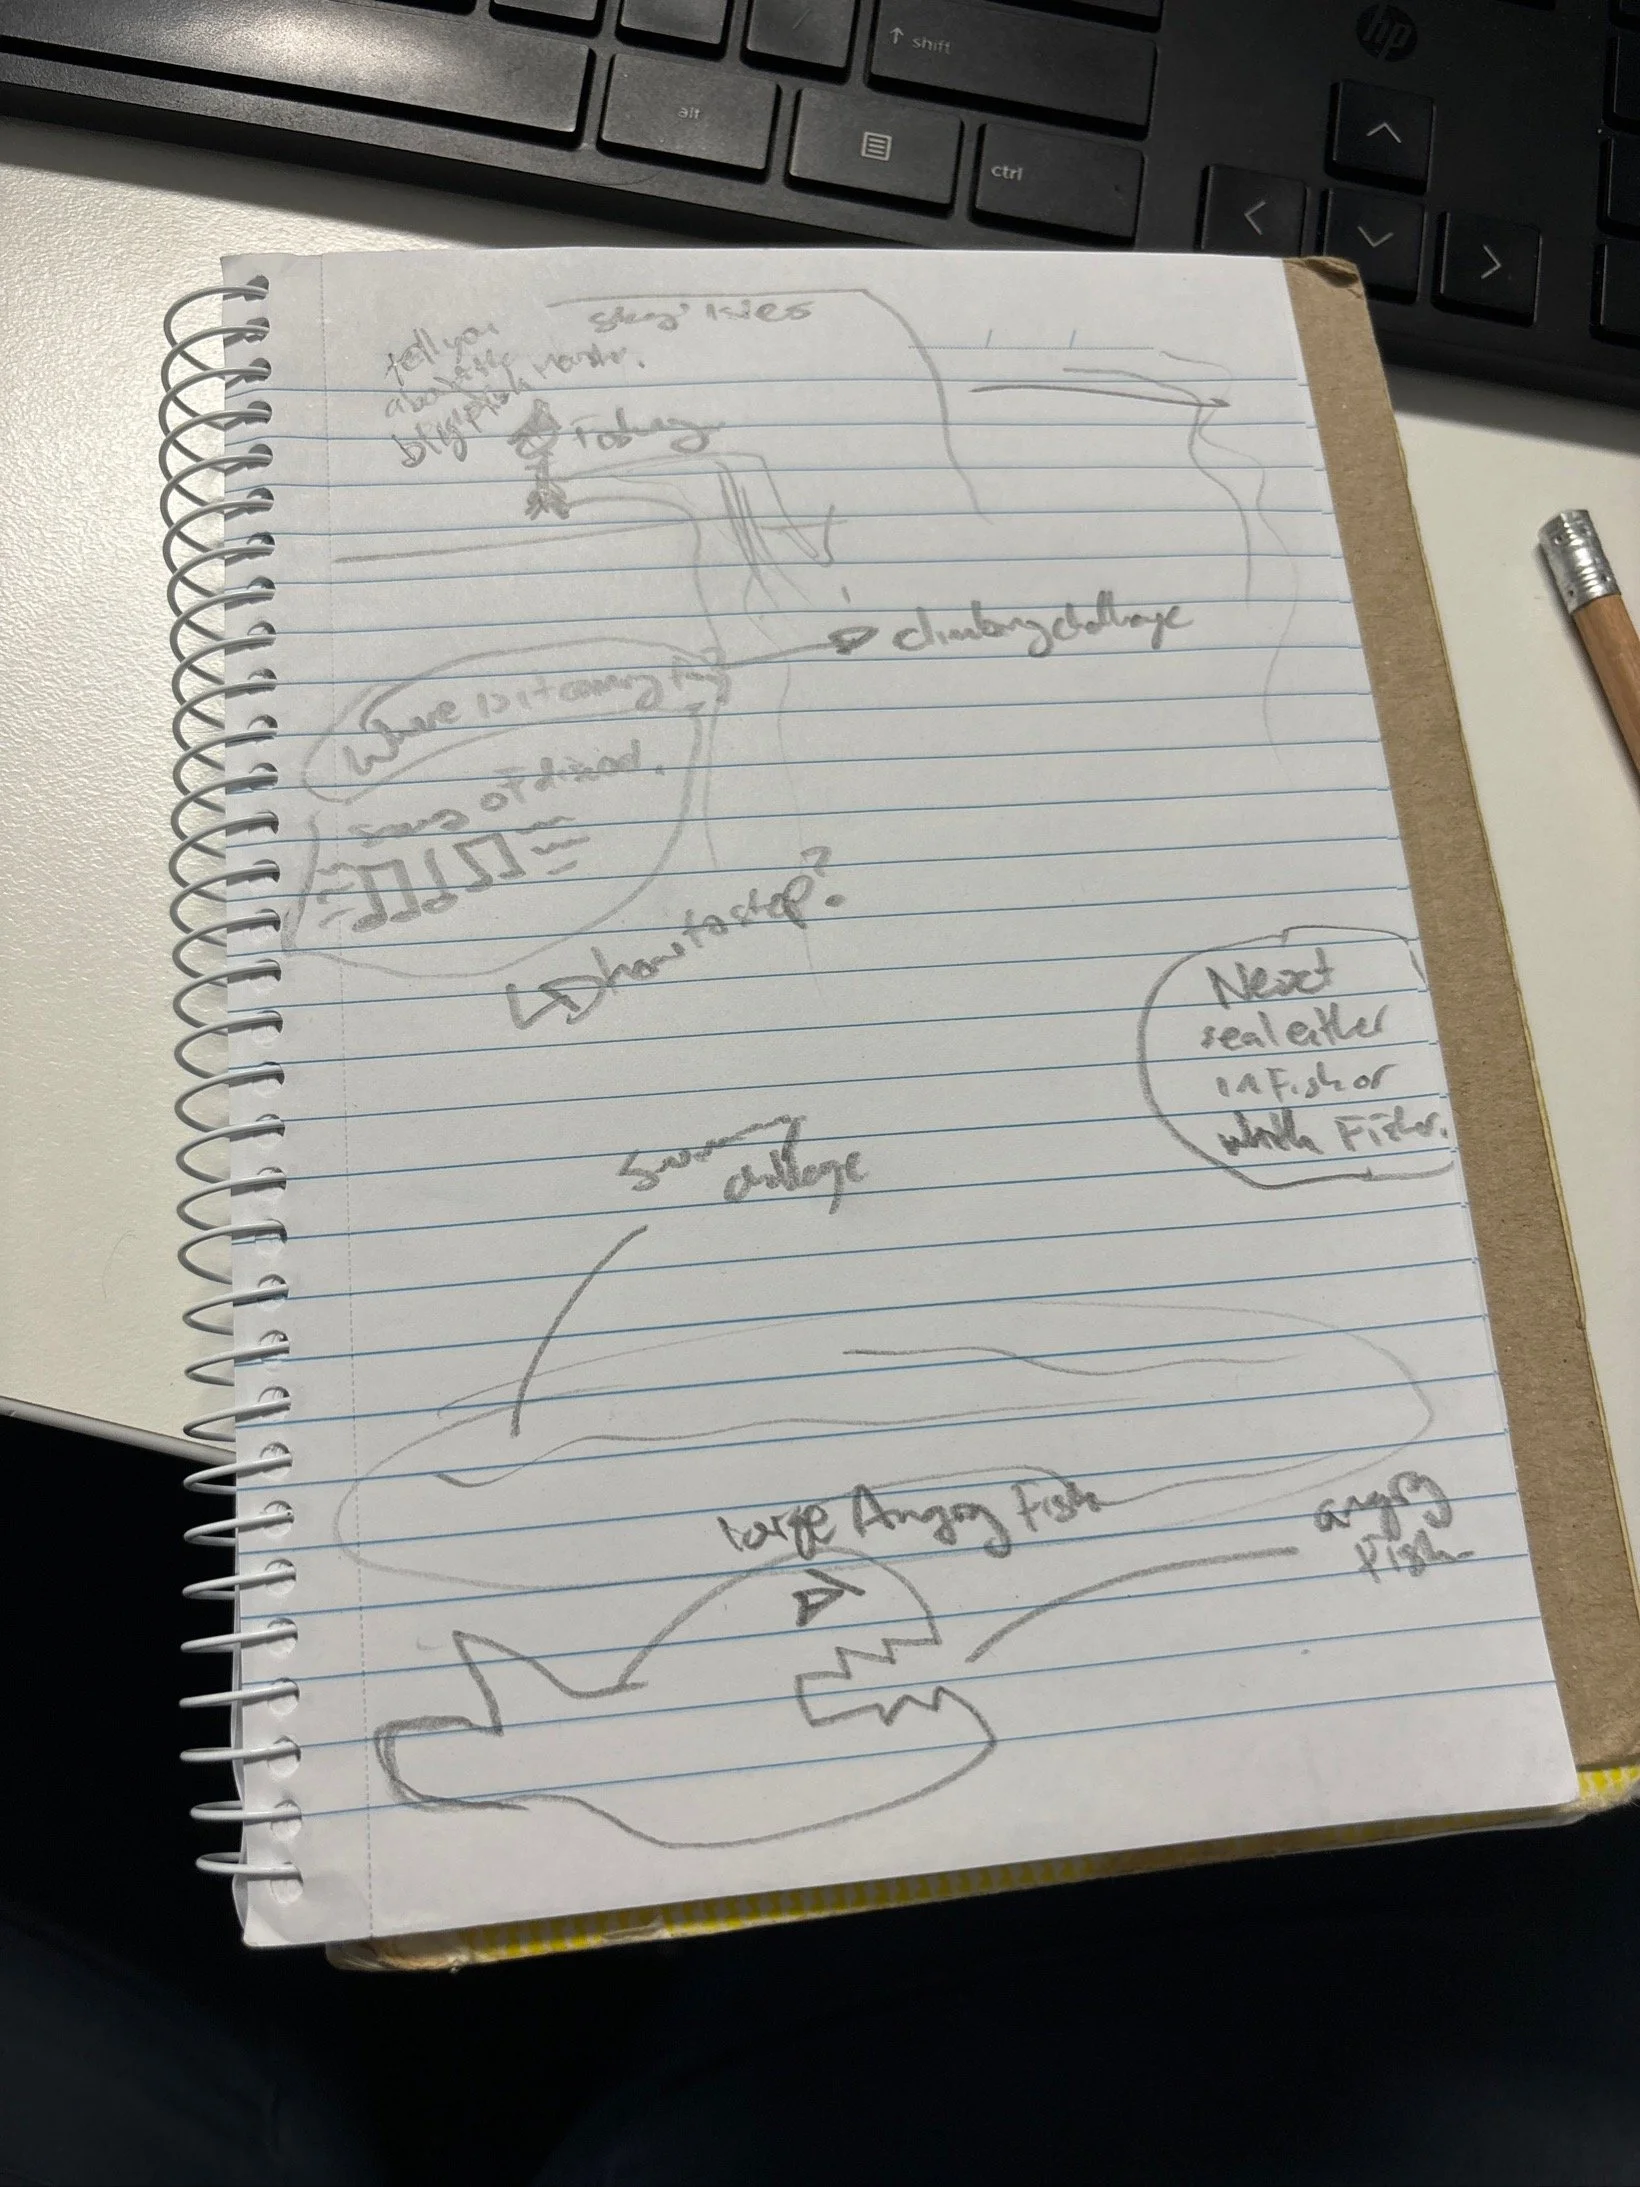 ↑ shift
hp
alt
ctrl
tell you
about the
big fish
Fishing
climbing challenge
Where is it coming
song of
how to stop?
Next
seal either
in Fish or
with Fisher.
Swimming
challenge
large Angry Fish
angry
Fish